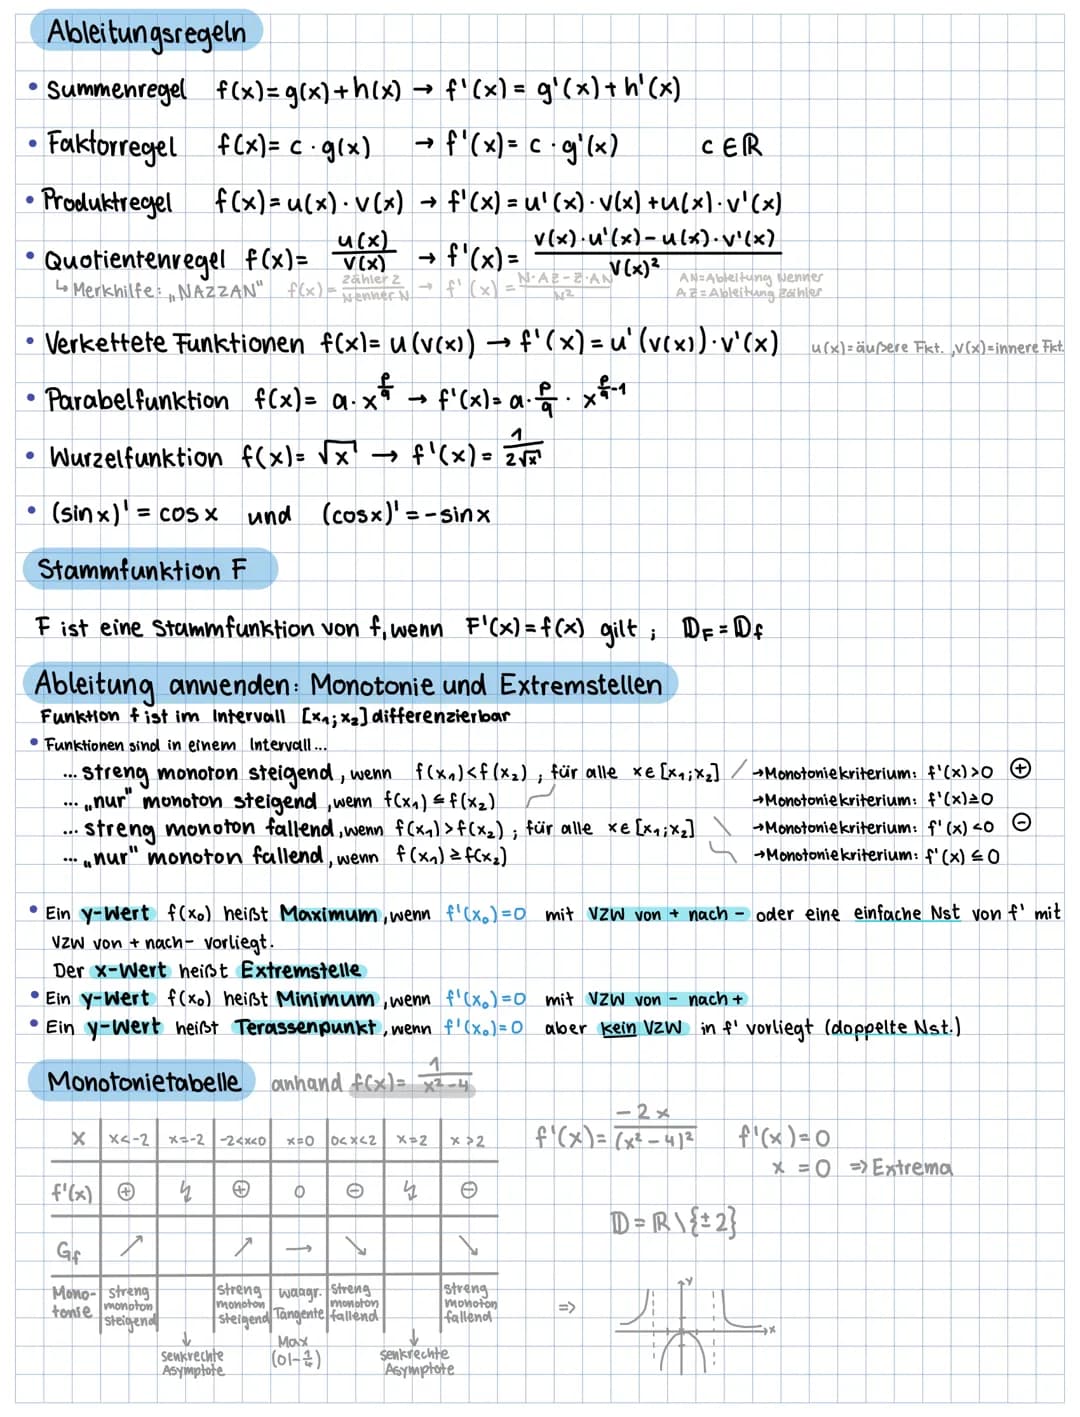 Ableitungsregeln
• Summenregel f(x)= g(x)+h(x) → f'(x) = g'(x)+h'(x)
• Faktorregel f(x)= c · g(x) → f'(x)= c · g'(x) c∈ℝ
• Produktregel f(x)= u(x) · v(x) → f'(x) = u'(x) · v(x) + u(x) · v'(x)
• Quotientenregel f(x)= u(x)/v(x) → f'(x)= (v(x) · u'(x) − u(x) · v'(x))/v(x)²
↳ Merkhilfe: „NAZZAN" f(x)= Zähler Z/Nenner N → f'(x) = (N·AZ−Z·AN)/N² AN=Ableitung Nenner
AZ=Ableitung Zähler
• Verkettete Funktionen f(x)= u(v(x)) → f'(x) = u'(v(x)) · v'(x) u(x)=äußere Fkt., v(x)=innere Fkt.
• Parabelfunktion f(x)= a · x^(p/q) → f'(x)= a · p/q · x^(p/q −1)
• Wurzelfunktion f(x)= √x → f'(x) = 1/(2√x)
• (sin x)' = cos x und (cos x)' = −sin x
Stammfunktion F
F ist eine Stammfunktion von f, wenn F'(x) = f(x) gilt ; 𝔻F = 𝔻f
Ableitung anwenden: Monotonie und Extremstellen
Funktion f ist im Intervall [x₁; x₂] differenzierbar
• Funktionen sind in einem Intervall...
... streng monoton steigend, wenn f(x₁)<f(x₂) , für alle x∈[x₁;x₂] →Monotoniekriterium: f'(x)>0 ⊕
... „nur" monoton steigend, wenn f(x₁) ≤ f(x₂) →Monotoniekriterium: f'(x)≥0
... streng monoton fallend, wenn f(x₁)>f(x₂) ; für alle x∈[x₁;x₂] →Monotoniekriterium: f'(x)<0 ⊖
... „nur" monoton fallend, wenn f(x₁) ≥ f(x₂) →Monotoniekriterium: f'(x) ≤ 0
• Ein y-Wert f(x₀) heißt Maximum, wenn f'(x₀)=0 mit VZW von + nach − oder eine einfache Nst von f' mit
VZW von + nach− vorliegt.
Der x-Wert heißt Extremstelle
• Ein y-Wert f(x₀) heißt Minimum, wenn f'(x₀)=0 mit VZW von − nach +
• Ein y-Wert heißt Terassenpunkt, wenn f'(x₀)=0 aber kein VZW in f' vorliegt (doppelte Nst.)
Monotonietabelle anhand f(x)= 1/(x²−4)
x x<-2 x=-2 -2<x<0 x=0 0<x<2 x=2 x>2
f'(x) ⊕ ↯ ⊕ 0 ⊖ ↯ ⊖
Gf ↗ ↗ → ↘ ↘
Mono-tonie streng monoton steigend streng monoton steigend waagr. Tangente streng monoton fallend streng monoton fallend
↓ senkrechte Asymptote Max (0|−1/4) ↓ senkrechte Asymptote
f'(x)= −2x/(x²−4)² f'(x)=0
x = 0 ⇒ Extrema
𝔻 = ℝ\{±2}
⇒
y
x